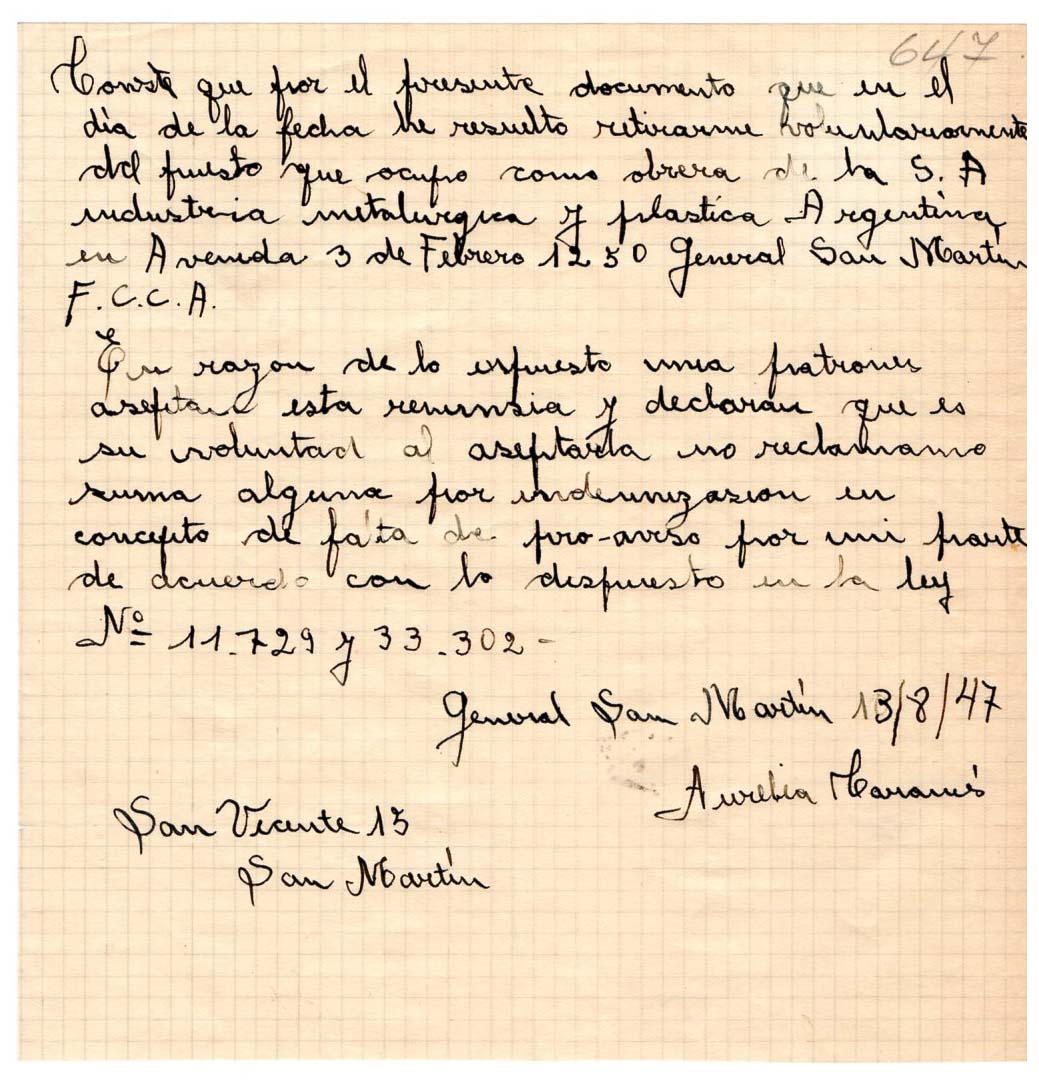 647
Conste que por el presente documento que en el
día de la fecha he resuelto retirarme voluntariamente
del puesto que ocupo como obrera de la S. A
industria metalurgica y plastica Argentina
en Avenida 3 de Febrero 1250 General San Martín
F.C.C.A.
En razon de lo expuesto mis patrones
aseptan esta renunsia y declaran que es
su voluntad al aseptarla no reclamano
suma alguna por indemnizasion en
concepto de falta de pre-aviso por mi parte
de acuerdo con lo dispuesto en la ley
Nº 11.729 y 33.302-
General San Martín 13/8/47
Aurelia
San Vicente 15
San Martín